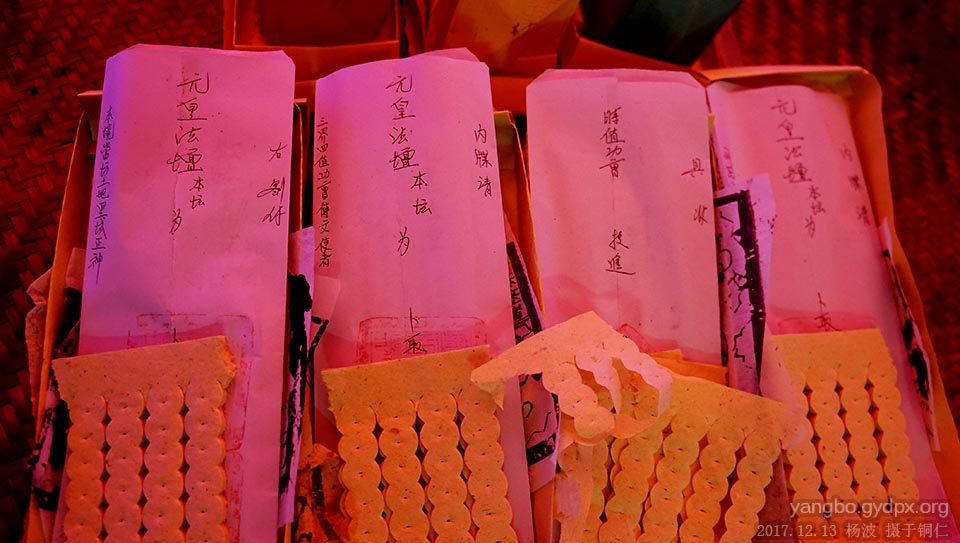 右劄付
元皇法壇本坛为
本境当坊土地里域正神
内牒请
元皇法壇本坛为
卜取
三界四值功曹傳文使者
具状
時值功曹 投進
内牒请
元皇法壇本坛为
卜取
yangbo.gydpx.org
2017.12.13 杨波 摄于铜仁